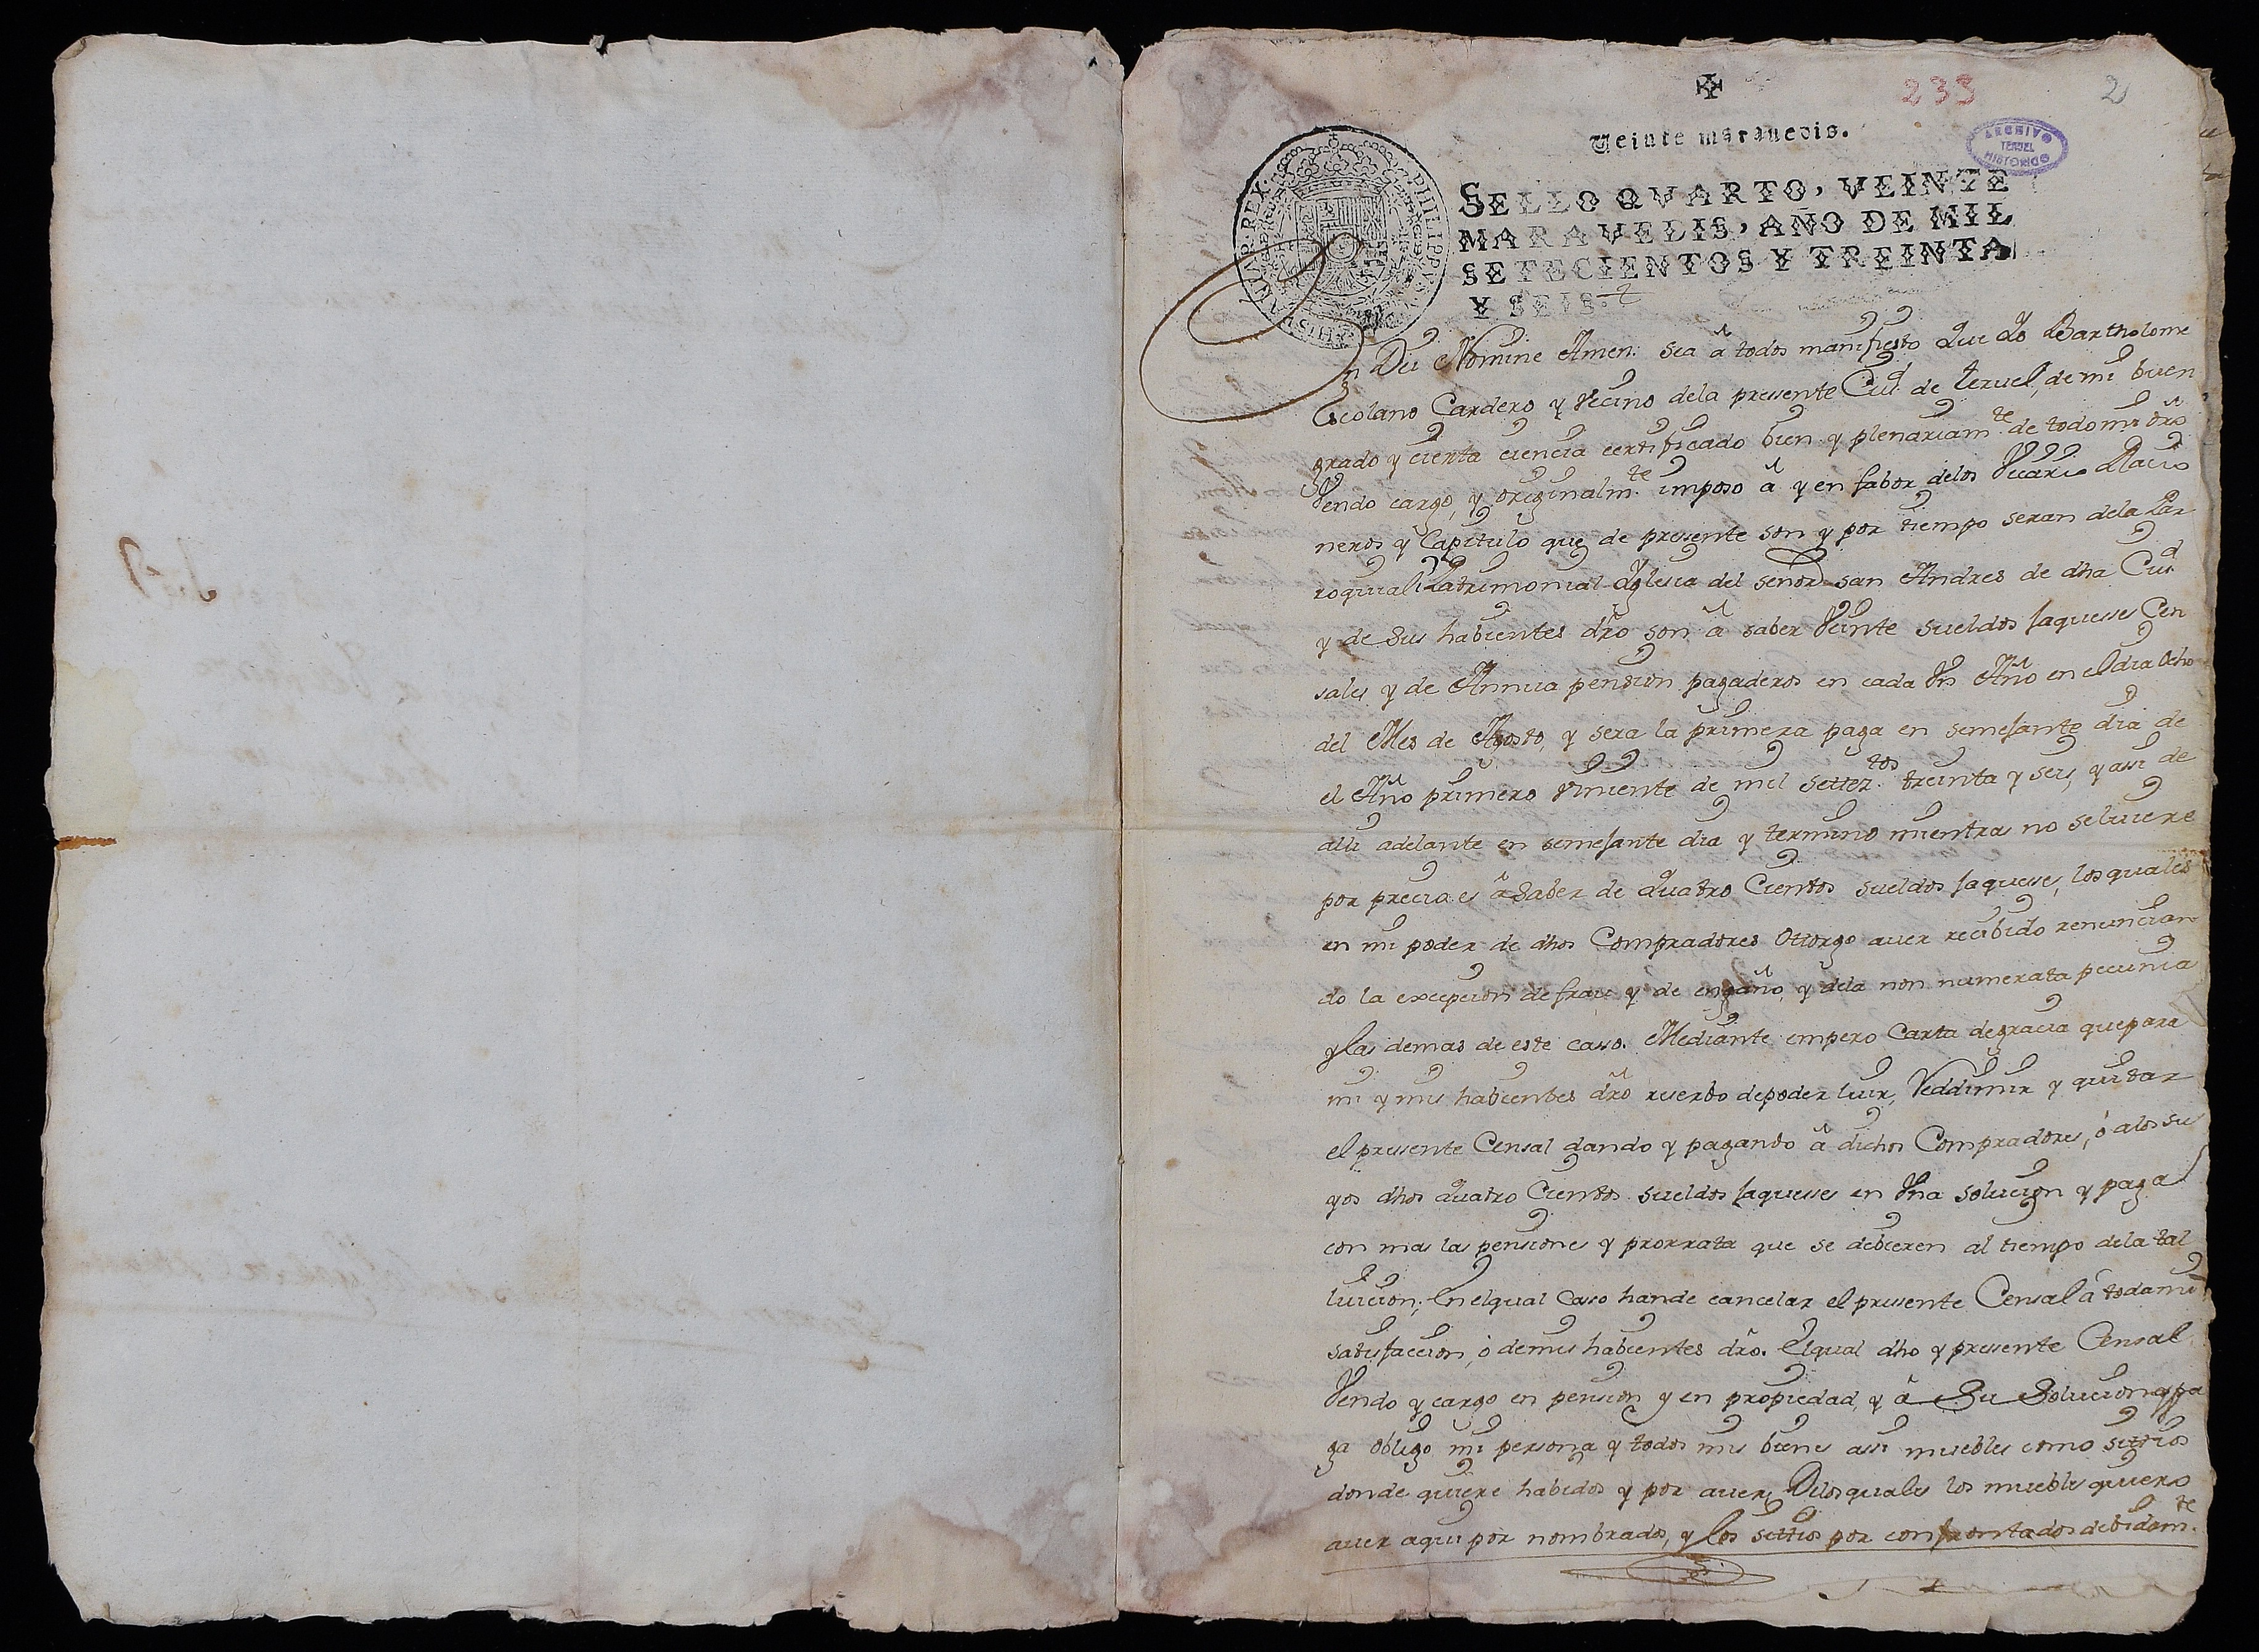 233
2
Veinte maravedis.
ARCHIVO
TERUEL
HISTORICO
PHILIPPVS HISPANIAR REX
SELLO QVARTO, VEINTE
MARAVEDIS, AÑO DE MIL
SETECIENTOS Y TREINTA
Y SEIS.
In Dei Nomine Amen. Sea â todos manifiesto Que Yo Bartholome
Escolano Cardero y Vecino dela pressente Ciud. de teruel, de mi buen
grado y cierta ciencia certificado bien y plenariamte. de todo mi dro
Vendo cargo, y originalmte. imposo â y en fabor delos Vicario Racio
neros y Capitulo que de pressente son y por tiempo seran dela Par
roquial Patrimonial Yglesia del señor san Andres de dha Ciud
y de sus habientes dro son â saber Veinte sueldos Jaquesses Cen
sales y de Annua pension pagaderos en cada Vn Año en el dia ocho
del Mes de Agosto, y sera la primera paga en semejante dia de
el Año primero Viniente de mil settez.tos treinta y seis, y assi de
alli adelante en semejante dia y termino mientras no se luiere
por precio es â saber de quatro Cientos sueldos Jaquesses, los quales
en mi poder de dhos Compradores Otorgo auer recibido renuncian
do la excepcion de frau y de engaño, y dela non numerata pecunia
y las demas de este casso. Mediante empero Carta de gracia que para
mi y mis habientes dro reserbo de poder luir, Reddimir y quitar
el pressente Censal dando y pagando â dichos Compradores, ò a los su
yos dhos quatro Cientos sueldos Jaquesses en Vna solucion y paga
con mas las pensiones y prorrata que se debieren al tiempo dela tal
luicion; En el qual Caso han de cancelar el pressente Censal â toda mi
satisfaccion, ò de mis habientes dro. El qual dho y pressente Censal
Vendo y cargo en pension y en propiedad, y â Su Solucion y pa
ga obligo mi persona y todos mis bienes assi muebles como sittios
donde quiere habidos y por auer, Delos quales los muebles quiero
auer aqui por nombrados, y los sittios por confrontados debidamte.